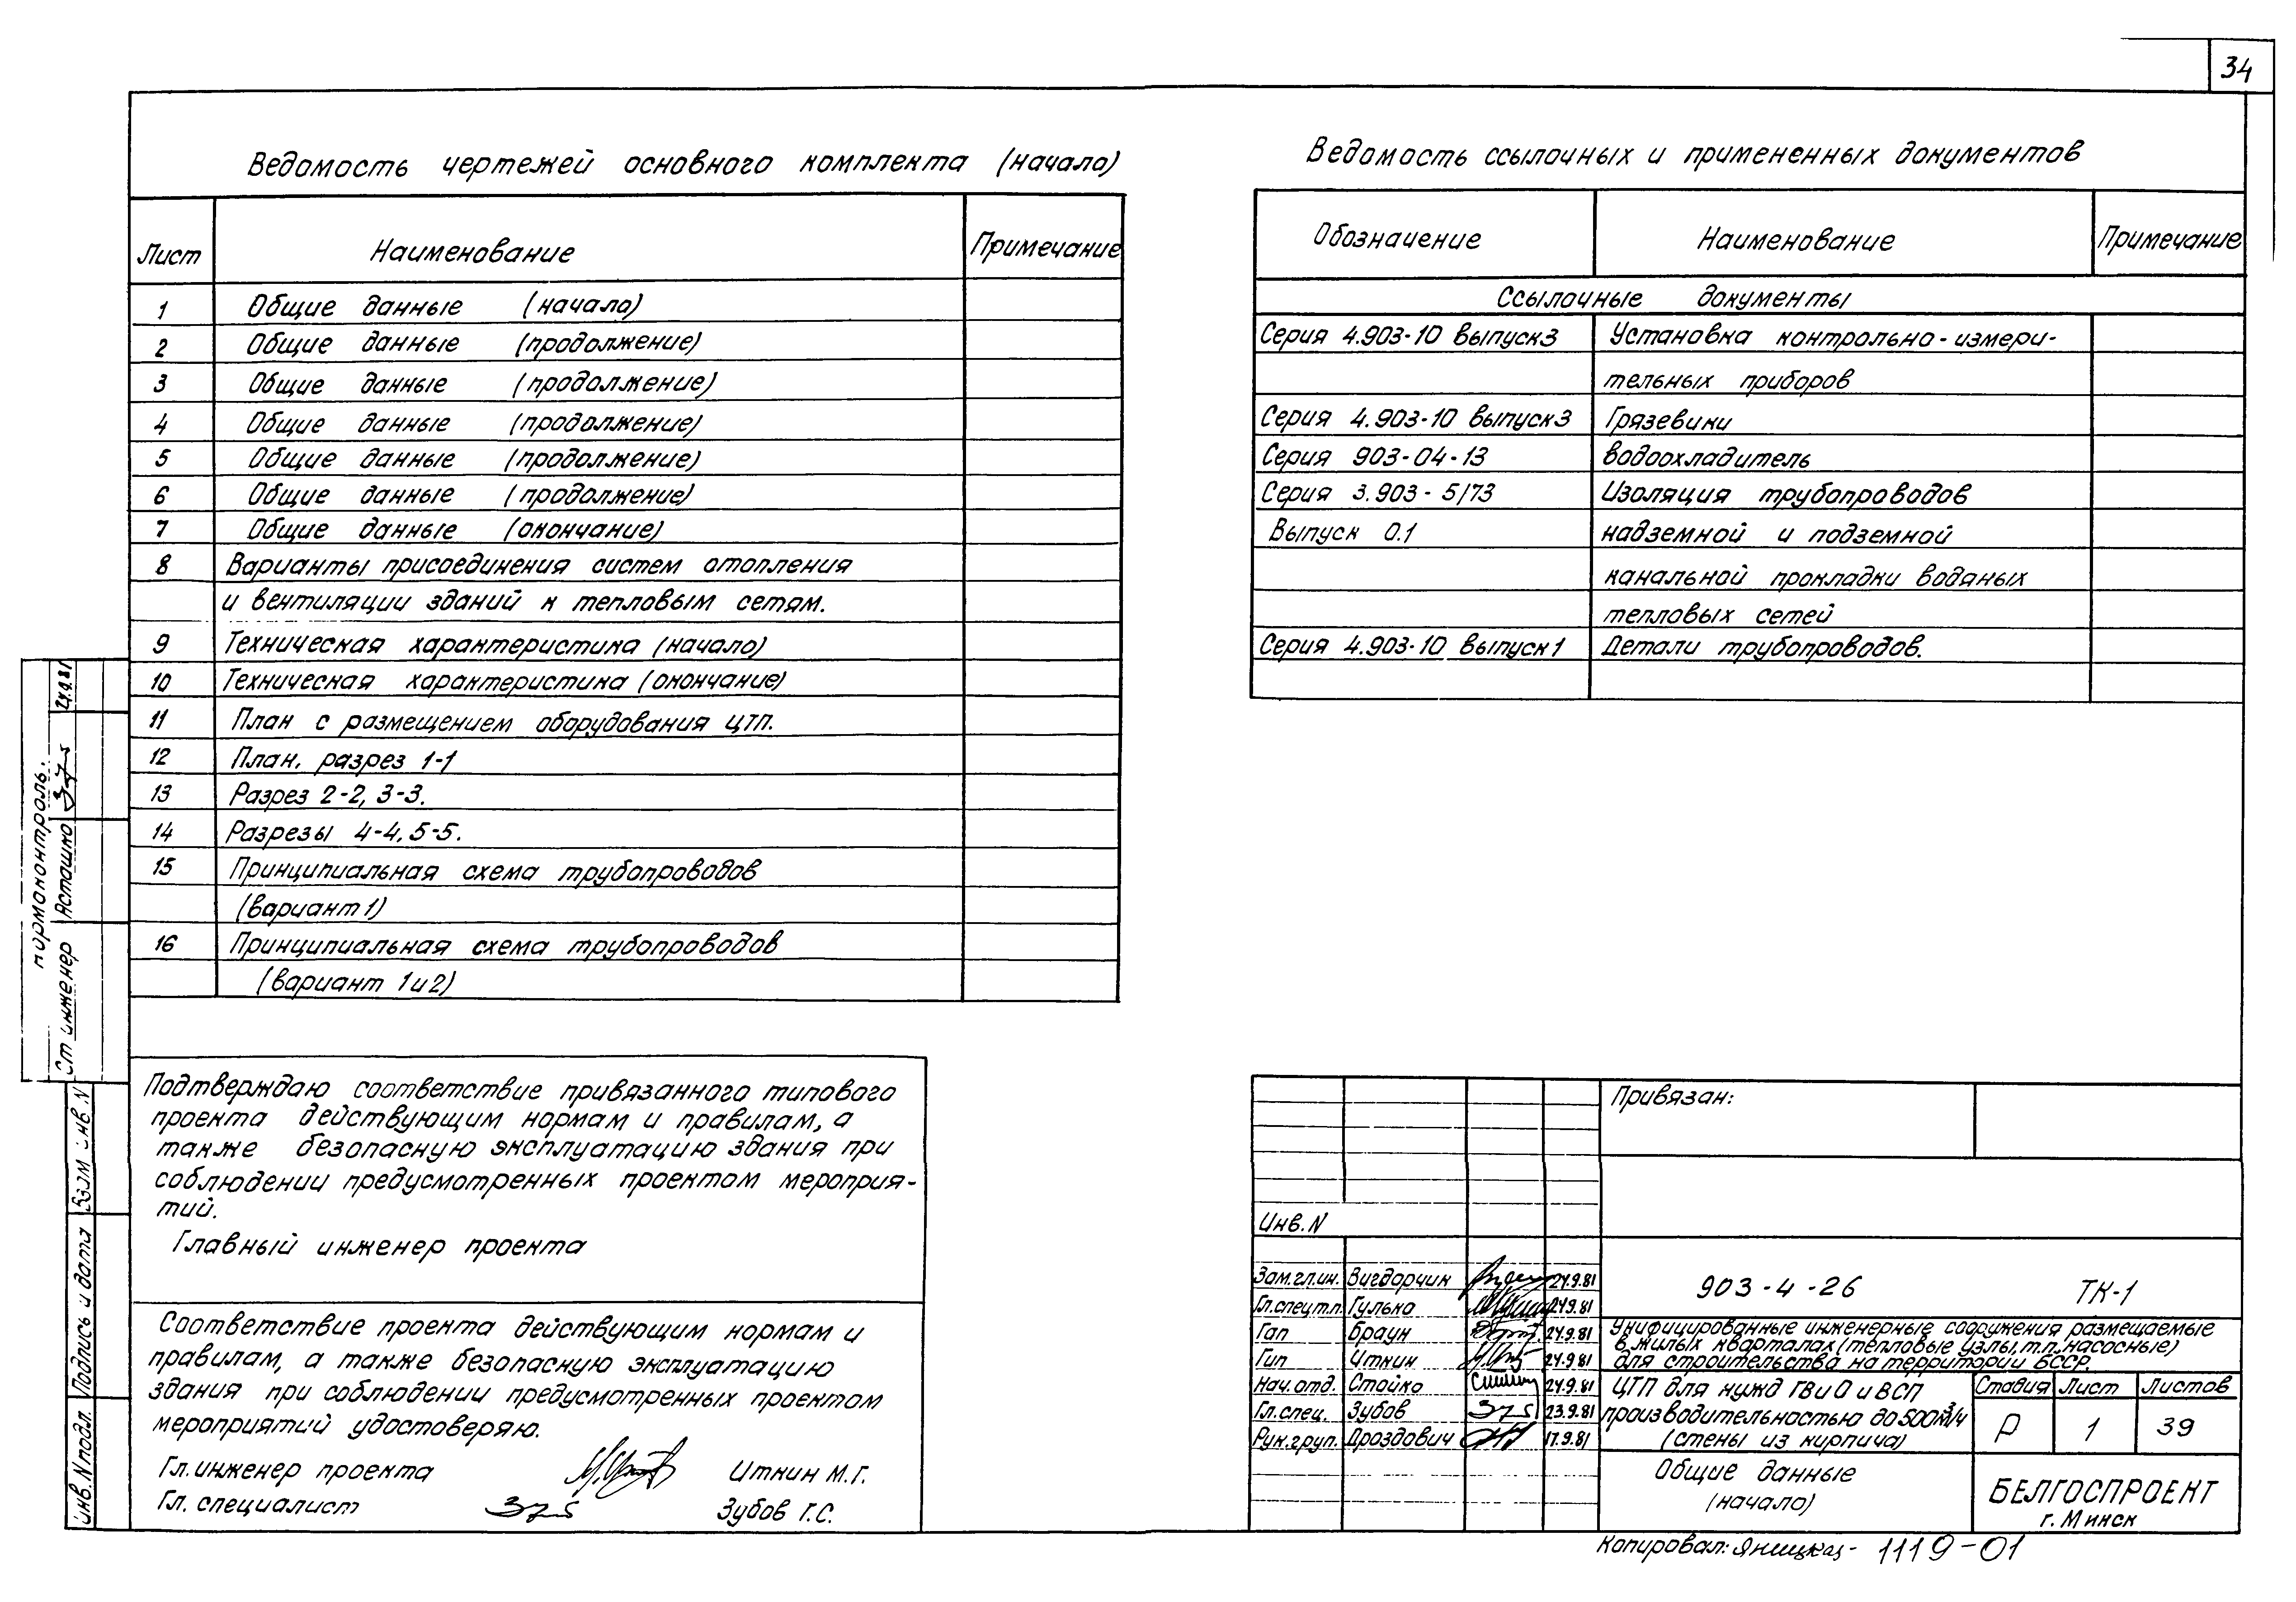 34
Ведомость чертежей основного комплекта (начало)
Лист Наименование Примечание
1 Общие данные (начало)
2 Общие данные (продолжение)
3 Общие данные (продолжение)
4 Общие данные (продолжение)
5 Общие данные (продолжение)
6 Общие данные (продолжение)
7 Общие данные (окончание)
8 Варианты присоединения систем отопления
и вентиляции зданий к тепловым сетям.
9 Техническая характеристика (начало)
10 Техническая характеристика (окончание)
11 План с размещением оборудования ЦТП.
12 План, разрез 1-1
13 Разрез 2-2, 3-3.
14 Разрезы 4-4, 5-5.
15 Принципиальная схема трубопроводов
(вариант 1)
16 Принципиальная схема трубопроводов
(вариант 1 и 2)
Ведомость ссылочных и примененных документов
Обозначение Наименование Примечание
Ссылочные документы
Серия 4.903-10 выпуск 3 Установка контрольно-измери-
тельных приборов
Серия 4.903-10 выпуск 3 Грязевики
Серия 903-04-13 водоохладитель
Серия 3.903-5/73 Изоляция трубопроводов
Выпуск 0.1 надземной и подземной
канальной прокладки водяных
тепловых сетей
Серия 4.903-10 выпуск 1 Детали трубопроводов.
Подтверждаю соответствие привязанного типового
проекта действующим нормам и правилам, а
также безопасную эксплуатацию здания при
соблюдении предусмотренных проектом мероприя-
тий.
Главный инженер проекта
Соответствие проекта действующим нормам и
правилам, а также безопасную эксплуатацию
здания при соблюдении предусмотренных проектом
мероприятий удостоверяю.
Гл. инженер проекта Иткин М.Г.
Гл. специалист Зубов Г.С.
нормоконтроль.
Ст инженер Асташко 24.9.81
Взам инв N
Подпись и дата
инв. N подл.
Привязан:
Инв. N
Зам.гл.ин. Вигдорчик 24.9.81
Гл.спец т.п. Гулько 24.9.81
Гап Браун 24.9.81
Гип Иткин 24.9.81
Нач. отд. Стойко 24.9.81
Гл.спец. Зубов 23.9.81
Рук.груп. Дроздович 17.9.81
903-4-26 ТК-1
Унифицированные инженерные сооружения размещаемые
в жилых кварталах (тепловые узлы, т.п. насосные)
для строительства на территории БССР
ЦТП для нужд ГВ и О и ВСП
производительностью до 500 м³/ч
(стены из кирпича)
Стадия Лист Листов
Р 1 39
Общие данные
(начало)
БЕЛГОСПРОЕКТ
г. Минск
Копировал: Яницкая- 1119-01